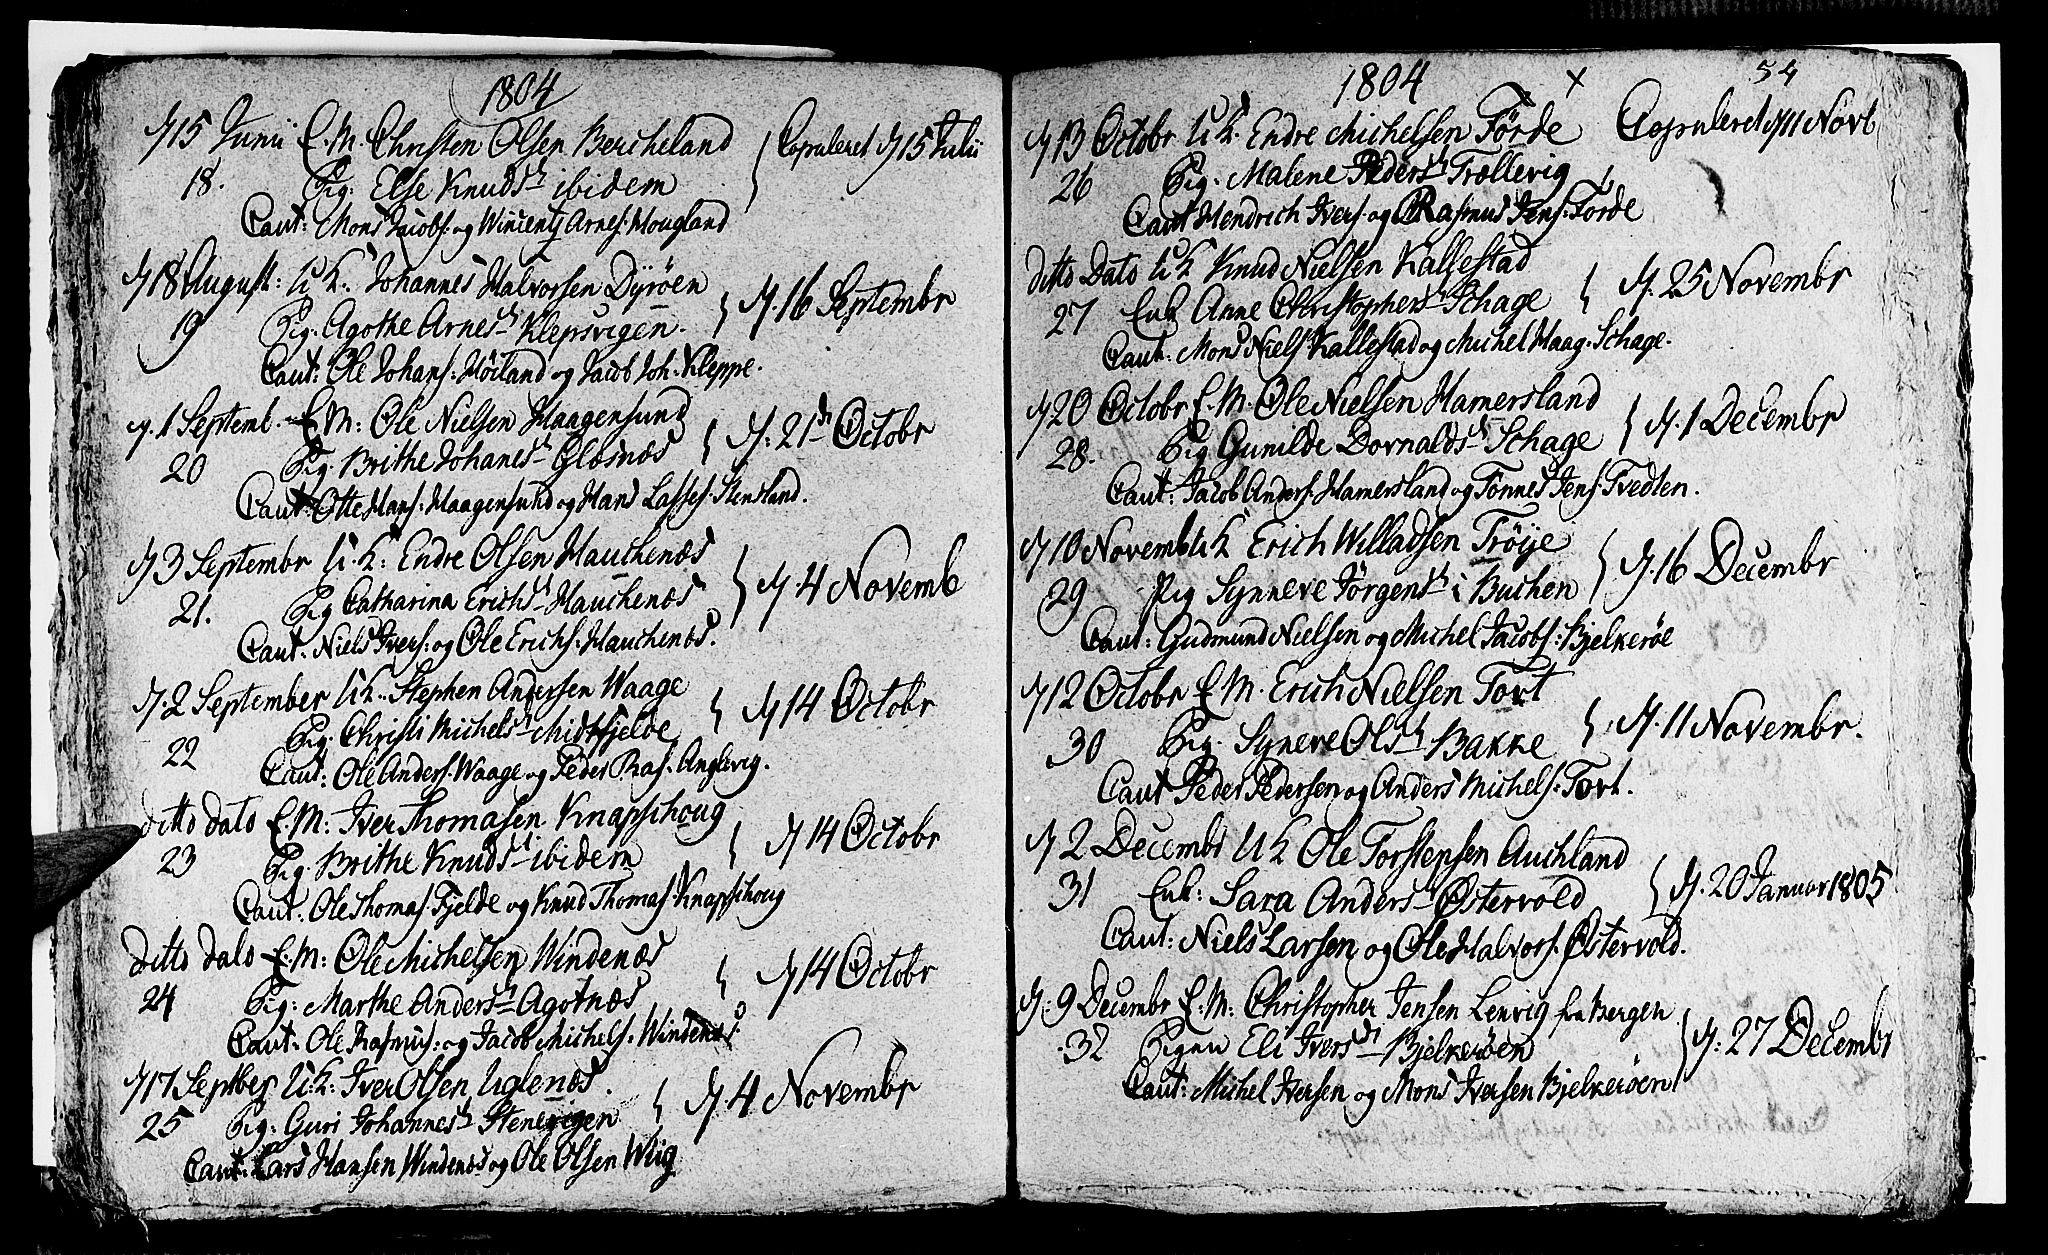 1804
d 15 Junii E. M. Christen Olsen Bercheland } Copuleret d 15 Julii
18. Pig: Else Knudsd ibidem
Caut: Mons Jacobs: og Wincentz Arnes: Hougland
d 18 August: U K: Johannes Halvorsen Dyrøen } d. 16 Septembr
19 Pig: Agothe Arnesd Klepsvigen.
Caut: Ole Johans: Høiland og Jacob Joh: Kleppe.
d. 1 Septemb. E. M: Ole Nielsen Haagensund } d: 21de Octobr
20 Pig. Brithe Johanesd Glæsnæs
Caut: Otte Hans: Haagensund og Hans Lasses: Stensland.
d 3 Septembr U. K: Endre Olsen Hauchenæs } d. 4 Novemb
21. Pig Catharina Erichsd Hauchenæs
Caut: Niels Ivers: og Ole Erichs: Hauchenæs.
d. 2 September U K. Stephen Andersen Waage } d 14 Octobr
22 Pig. Christi Michelsd Midtfjelde
Caut: Ole Anders: Waage og Peder Ras: Anglevig.
ditto dato E. M: Iver Thomasen Knapschoug } d 14 Octobr
23 Pig. Brithe Knudsd ibidem
Caut: Ole Thomas: Fjelde og Knud Thomas: Knapschoug
ditto dato E: M: Ole Michelsen Windenæs } d 14 Octobr
24 Pig: Marthe Andersd Agotnæs
Caut: Ole Rasmus: og Jacob Michels: Windenæs
d 17 Septber U: K: Iver Olsen Uglenæs. } d. 4 Novembr
25 Pig: Guri Johannesd Stenevigen
Caut: Lars Hansen Windenæs og Ole Olsen Wiig
1804 x 54
d 13 Octobr U K. Endre Michelsen Førde Copuleret d 11 Novb
26 Pig: Malene Pedersd Trællevig
Caut Hendrich Ivers: og Rasmus Jens: Førde
ditto Dato U K Knud Nielsen Kallestad } d. 25 Novembr
27 Enk Anne Christophersd Schage
Caut. Mons Niels: Kallestad og Michel Haag: Schage.
d 20 Octobr E. M. Ole Nielsen Hamersland } d. 1 Decembr
28. Pig Gunilde Dornaldsd Schage
Caut: Jacob Anders: Hamersland og Tønnes Jens: Tvedten.
d 10 Novemb U K Erich Willadsen Trøije } d. 16 Decembr
29 Pig Synneve Jørgensd i Buchen
Caut: Gudmund Nielsen og Michel Jacobs: Bjelkerøe
d 12 Octobr E M. Erich Nielsen Tort } d. 11 Novembr.
30 Pig. Syneve Olsd Bakke
Caut Peder Pedersen og Anders Michels: Tort.
d 2 Decembr U K Ole Torstepsen Auchland } d. 20 Januar 1805
31 Enk: Sara Andersd Østervold
Caut: Niels Larsen og Ole Halvors: Østervold.
d: 9 Decembr E. M: Christopher Jensen Lenvig fra Bergen } d: 27 Decembr
32 Pigen Eli Iversd Bjelkerøen
Caut: Michel Iversen og Mons Iversen Bjelkerøen